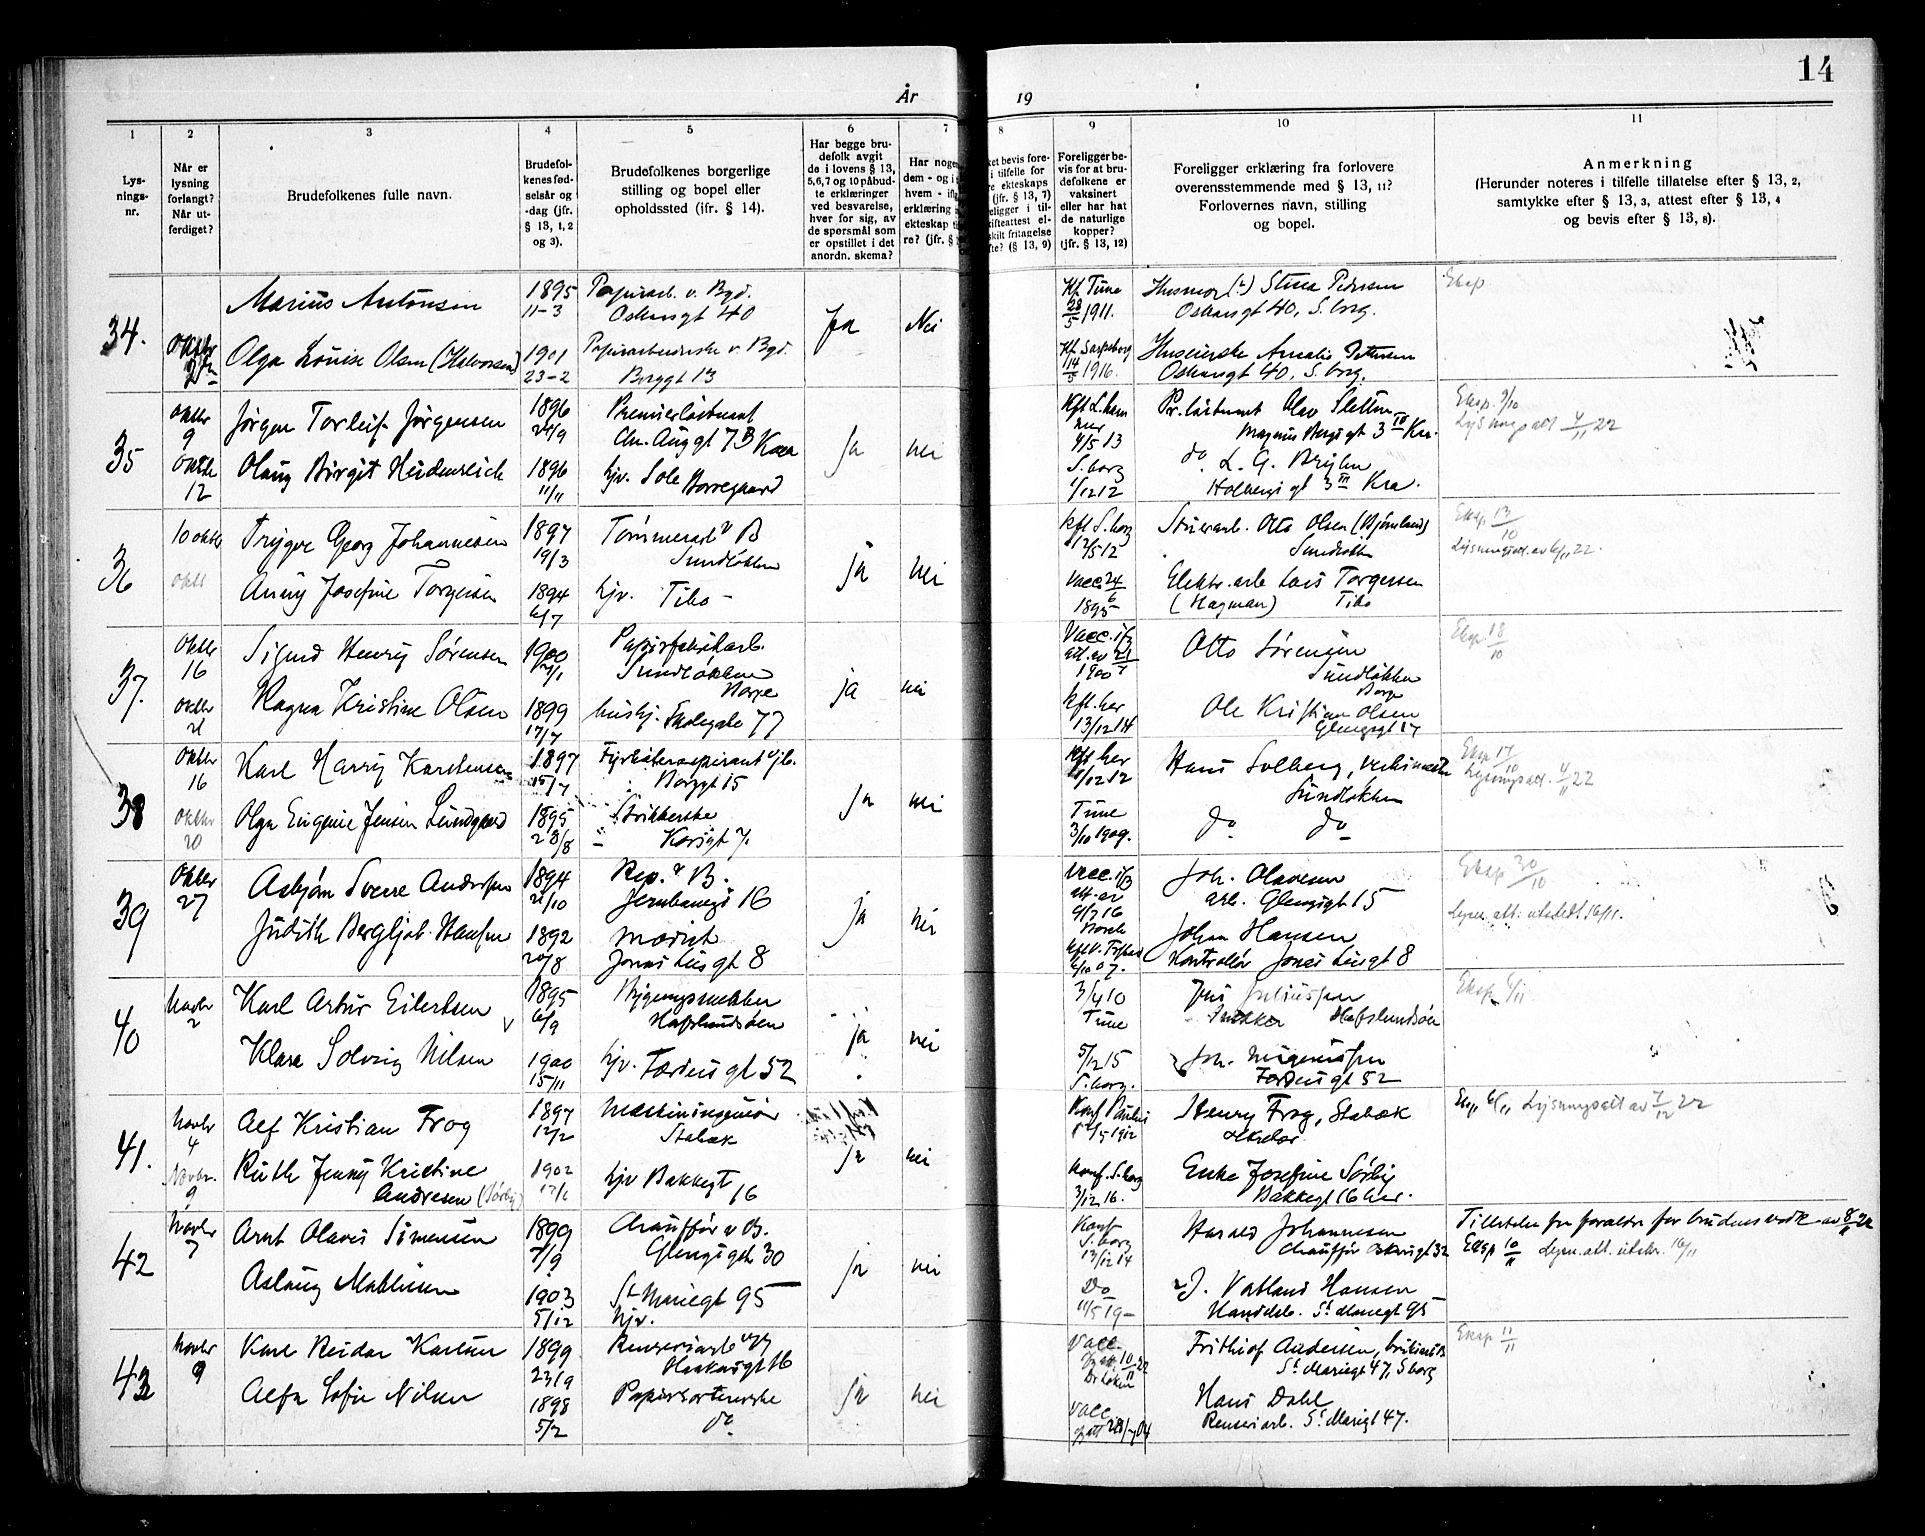 14
År
19
1
2
3
4
5
6
7
8
9
10
11
Lys-
nings-
nr.
Når er
lysning
forlangt?
Når ut-
ferdiget?
Brudefolkenes fulle navn.
Brudefol-
kenes fød-
selsår og
-dag (jfr.
§ 13, 1, 2
og 3).
Brudefolkenes borgerlige
stilling og bopel eller
opholdssted (ifr. § 14).
Har begge bru-
defolk avgit
de i lovens § 13,
5,6,7 og 10 påbud-
te erklæringer
ved besvarelse,
hver for sig, av
de spørsmål som
er opstillet i det
anordn. skema?
Har nogen
dem - og i
hvem - ifl.
erklæring
ekteskap ti
re? (jfr. §
ket bevis fore-
i tilfelle for
re ekteskaps
(jfr. § 13, 7)
eligger i til-
kifteattest el-
skilt fritagelse
fte? (§ 13, 9)
Foreligger be-
vis for at bru-
defolkene er
vaksinert
eller har hat
de naturlige
kopper?
(jfr. § 13, 12)
Foreligger erklæring fra forlovere
overensstemmende med § 13, 11?
Forlovernes navn, stilling
og bopel.
Anmerkning
(Herunder noteres i tilfelle tillatelse efter § 13, 2,
samtykke efter § 13, 3, attest efter § 13, 4
og bevis efter § 13, 8).
34.
Marius Antonsen
1895
11-3
Papirarb. v. Bgd.
Oskarsgt 40
Ja
Nei
Kf Tune
28/5 1911.
Stina Pedersen
Oskarsgt 40, S.borg.
Eksp
Olga Louise Olsen (Halvorsen)
1901
23-2
Papirarbeiderske v. Bgd.
Borggt 13
Kf Sarpsborg
14/5 1916.
Huseierske Amalie Pettersen
Oskarsgt 40, S.borg.
35
oktbr
9
Jørgen Torleif Jørgensen
1896
24/9
Premierløitnant
Chr. Aug gt 7B Kra
ja
nei
Kft L.ham
mer
4/5 13
Pr. løitnant Olav Sletten
Magnus Bergs gt 3 Kra.
Eksp. 9/10
Lysningsatt 4/11 22
oktbr
12
Olaug Birgit Heidenreich
1896
11/11
hjv. Sole Borregaard
S.borg
1/12 12
do L. G. Bryhn
Holbergs gt 3 Kra.
36
10 oktbr
Trygve Georg Johannesen
1897
19/3
Tømmerarb v B
Sundløkken
ja
nei
kft S.borg
12/5 12
Otto Olsen (Bjørnland)
Sundløkken
Eksp 13/10
Lysningsatt. av 6/11 22.
oktb
Anny Josefine Torgersen
1894
6/7
hjv. Tibo -
Vacc 24/6
1895
Elektr. arb Lars Torgersen
(Hagman) Tibo
37.
Oktbr
16
Sigurd Henry Sørensen
1900
Papirfabrikarb.
Sundløkken
Borge
ja
nei
Vacc. i/3
att. av 21/
1900
Otto Sørensen
Sundløkken
Borge
Eksp. 18/10
oktbr
21
Ragna Kristine Olsen
1899
17/7
hushj. Skolegate 77
kft. her
13/12 14
Ole Kristian Olsen
Glengsgt 17
38
oktbr
16
Karl Harry Karstensen
1897
15/7
Fyrbøteraspirant v jb.
Borggt 15
ja
nei
Kft her
/12 12
Hans Solberg,
Sundløkken
Eksp 17/10
Lysningsatt. 4/11 22
oktbr
20
Olga Eugenie Jensen Lundgaard
1895
28/8
Strikkerske
Korsgt 7.
Tune
3/10 1909.
do do
39
Oktbr
27
Asbjørn Sverre Andersen
1894
21/10
Rep. v B.
Jernbanegt 16
ja
nei
Vacc. i/3
att. av
9/7 16
Joh. Olavesen
arb. Glengsgt 15
Eksp 30/10
Lysn. att. utstedt 16/11.
Judith Bergljot Hansen
1892
20/8
modist
Jonas Lies gt 8
6/10 07.
Johan Hansen
Kontrollør Jonas Lies gt 8
40
Novbr
2
Karl Artur Eilertsen
1895
6/9
Bygningssnekker
Hafslundsøen
ja
nei
3/4 10
Tune
Jens Juliussen
Snekker Hafslundsøen
Eksp. 6/11
Klara Solveig Nilsen
1900
15/11
hjv. Torders gt 52
5/12 15
S.borg.
Joh. Magnussen
Torders gt 52
41.
Novbr
4
Alf Kristian Frog
1897
12/2
Maskiningeniør
Stabæk
ja
nei
Konf. Paulus
/5 1912
Henry Frog, Stabæk
Eksp 6/11 Lysningsatt av 7/12 22
Novbr.
9
Ruth Jenny Kristine
Andresen (Sørby)
1902
hjv Bakkegt
16
Konf. S.borg
3/12 16.
Enke Josefine Sørby
Bakkegt 16 her.
42
Novbr
7
Arnt Olaves Simensen
1899
7/9
Chauffør v B.
Glengsgt 30
ja
nei
Konf
S.borg
13/12 14
Harald Johannesen
Chauffør Oskarsgt 32
Tillatelse fra forældre for brudens vedk. av 8/11 22
Eksp 10/11 Lysn. att. utstr. 16/11
Aslaug Mathisen
1903
5/12
St Mariegt 95
hjv.
Do
11/5 19-
J. Vatland Hansen
Handelsb. St Mariegt 95
43
Novbr
9
Karl Reidar Karlsen
1899
23/9
Renseriarb v B
Haakonsgt 16
ja
nei
Vacc
10/11 22
Frithiof Andersen,
St Mariegt 47, S.borg
Eksp 11/11
Alfa Sofie Nilsen
1898
5/2
Papirsorterske
do
Vacc
Hans Dahl
Renseriarb. St Mariegt 47.